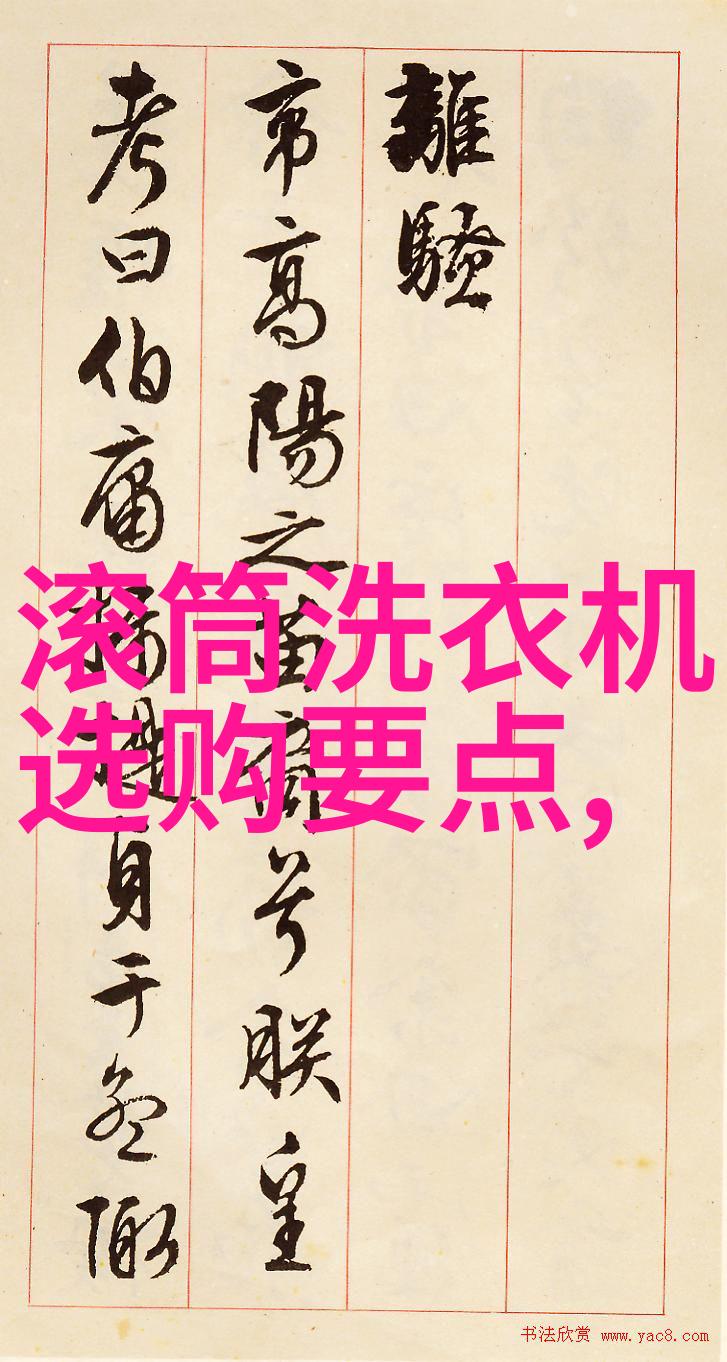 離騷
帝高陽之苗裔兮朕皇
考曰伯庸攝提貞于孟陬
滚筒洗衣机
选购要点,
书法欣赏 www.yac8.com